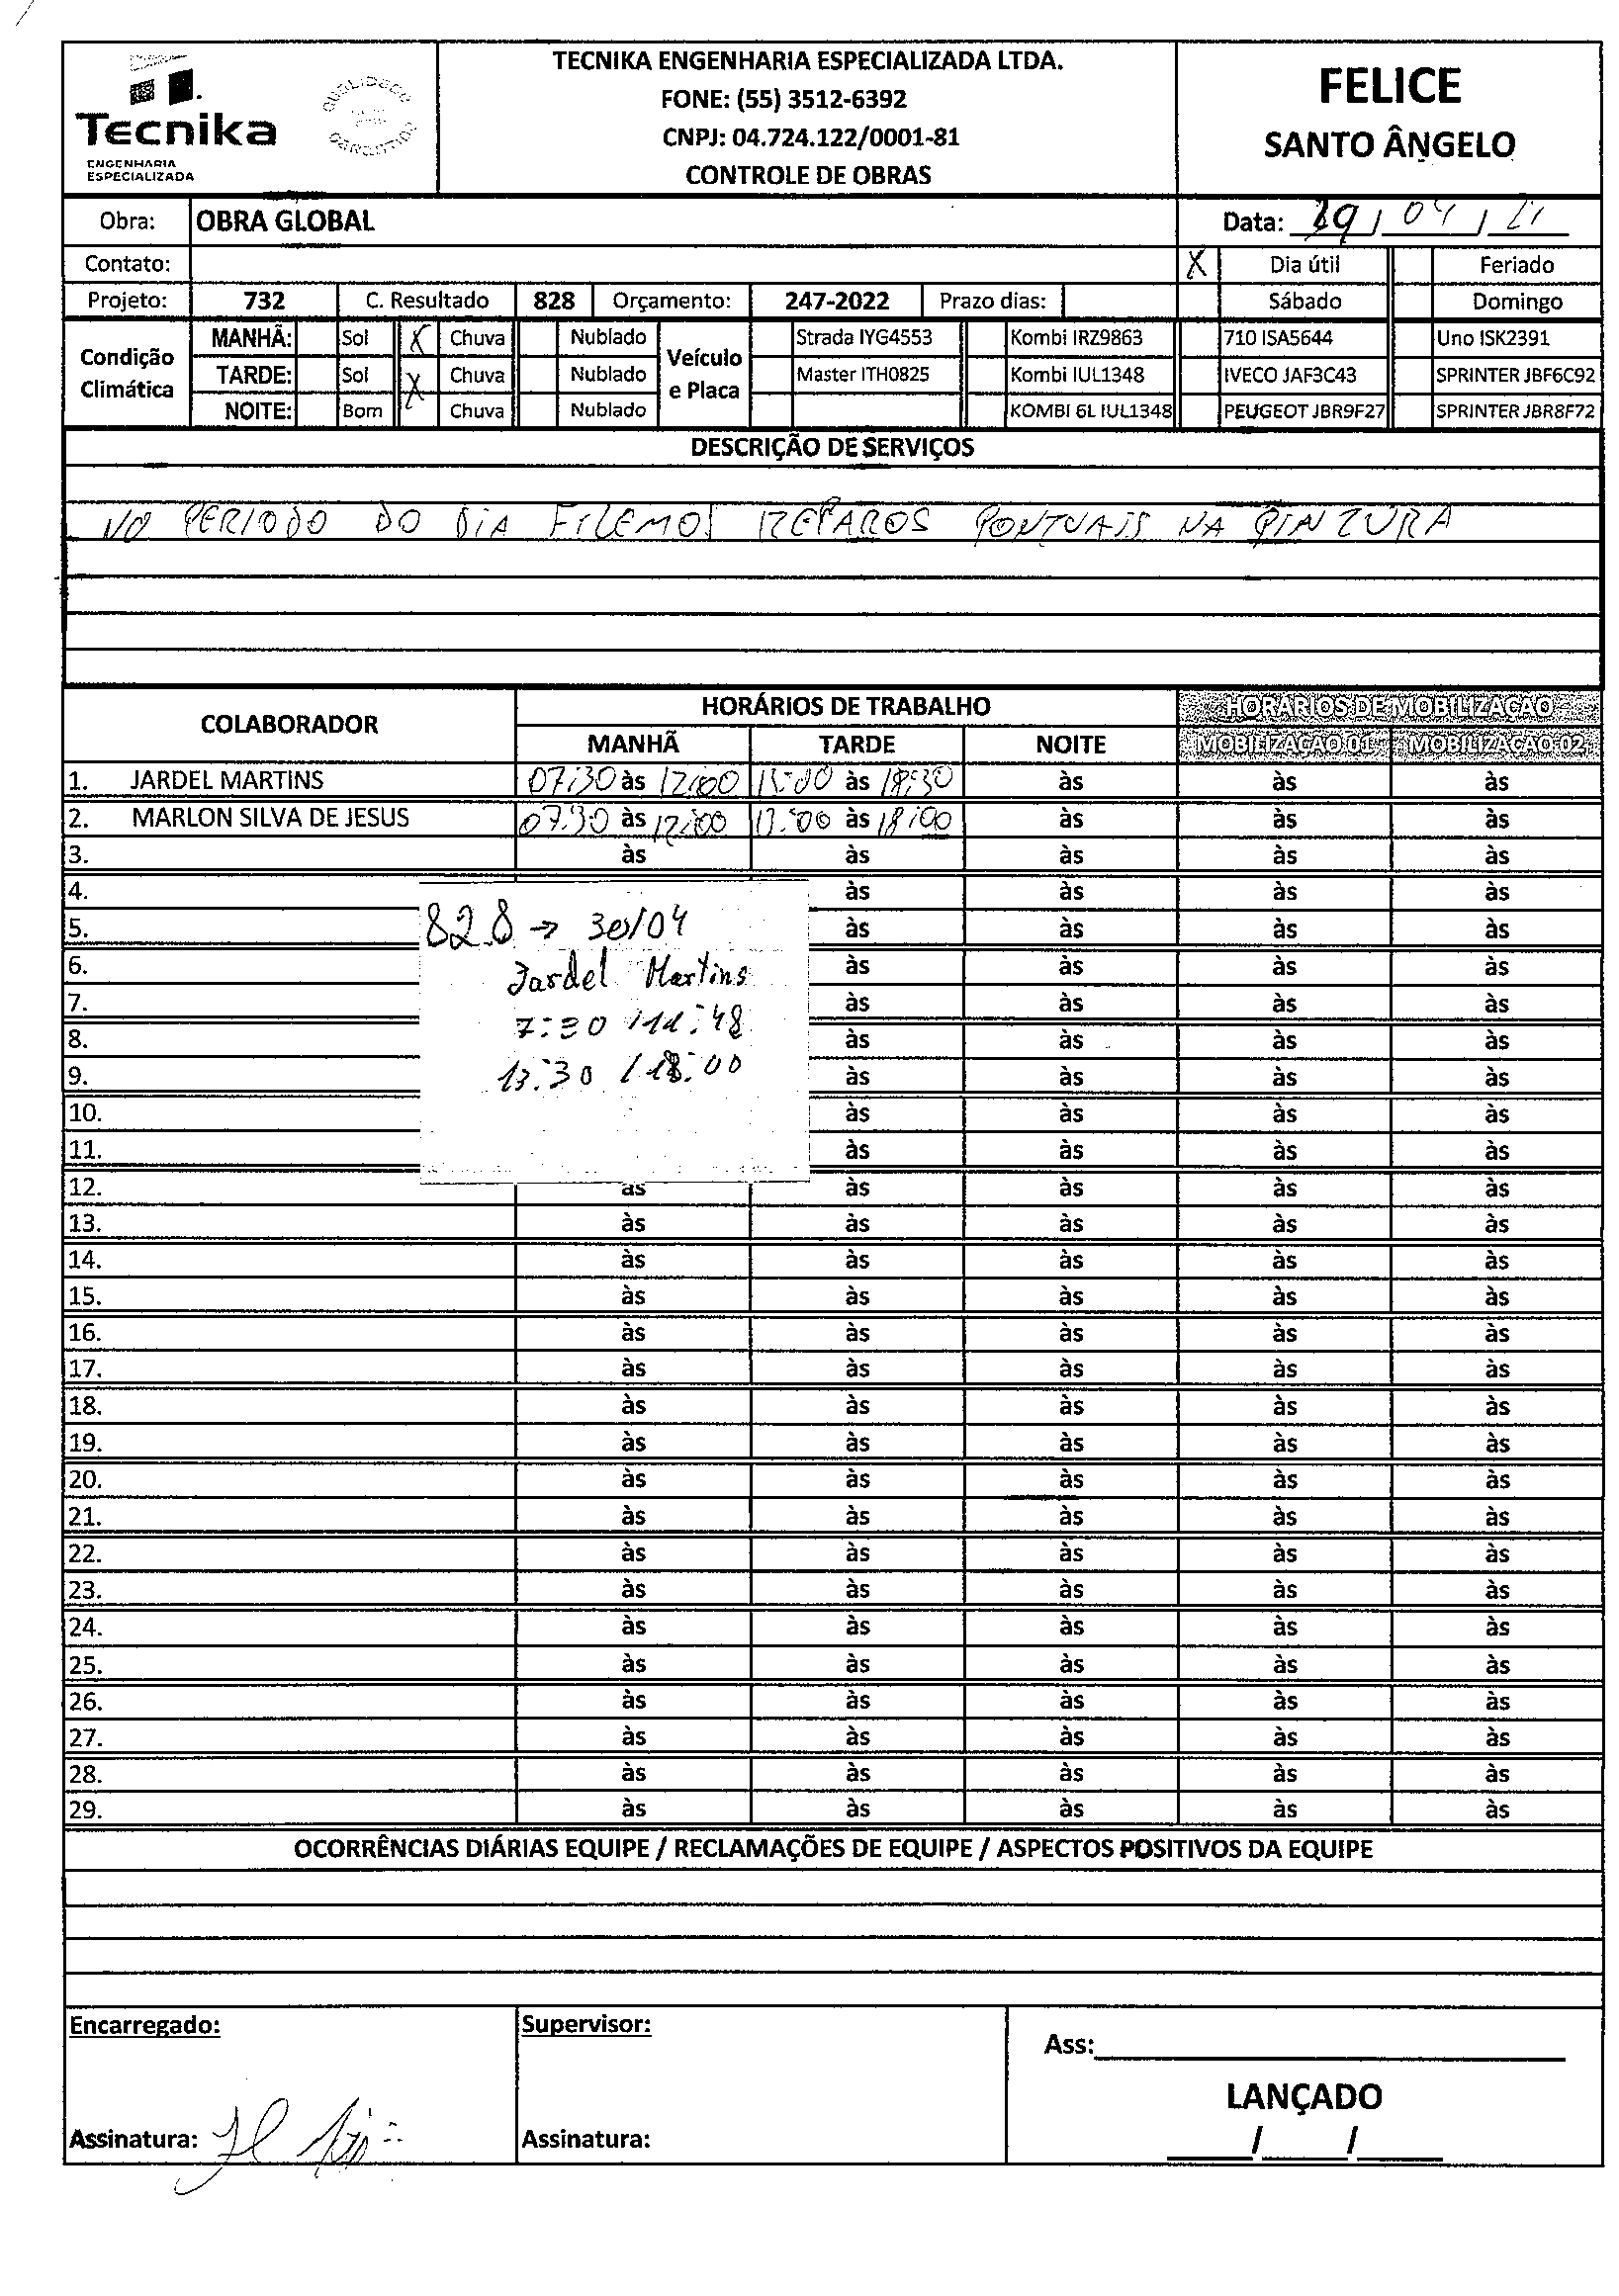 Tecnika
ENGENHARIA
ESPECIALIZADA
TECNIKA ENGENHARIA ESPECIALIZADA LTDA.
FONE: (55) 3512-6392
CNPJ: 04.724.122/0001-81
CONTROLE DE OBRAS
FELICE
SANTO ÂNGELO
Obra: OBRA GLOBAL Data: 29/04/
Contato: X Dia útil Feriado
Projeto: 732 C. Resultado 828 Orçamento: 247-2022 Prazo dias: Sábado Domingo
Condição Climática Veículo e Placa
MANHÃ: Sol X Chuva Nublado Strada IYG4553 Kombi IRZ9863 710 ISA5644 Uno ISK2391
TARDE: Sol X Chuva Nublado Master ITH0825 Kombi IUL1348 IVECO JAF3C43 SPRINTER JBF6C92
NOITE: Bom Chuva Nublado KOMBI 6L IUL1348 PEUGEOT JBR9F27 SPRINTER JBR8F72
DESCRIÇÃO DE SERVIÇOS
NO PERIODO DO DIA FILEMOS REPAROS PONTUAIS NA PINTURA
COLABORADOR HORÁRIOS DE TRABALHO HORÁRIOS DE MOBILIZAÇÃO
MANHÃ TARDE NOITE MOBILIZAÇÃO 01 MOBILIZAÇÃO 02
1. JARDEL MARTINS 07:30 às 12:00 13:00 às 18:30 às às às
2. MARLON SILVA DE JESUS 07:30 às 12:00 13:00 às 18:00 às às às
3. às às às às às
4. às às às às
5. às às às às
6. às às às às
7. às às às às
8. às às às às
9. às às às às
10. às às às às
11. às às às às
828 → 30/04
Jardel Martins
7:30 / 11:48
13:30 / 18:00
12. às às às às às
13. às às às às às
14. às às às às às
15. às às às às às
16. às às às às às
17. às às às às às
18. às às às às às
19. às às às às às
20. às às às às às
21. às às às às às
22. às às às às às
23. às às às às às
24. às às às às às
25. às às às às às
26. às às às às às
27. às às às às às
28. às às às às às
29. às às às às às
OCORRÊNCIAS DIÁRIAS EQUIPE / RECLAMAÇÕES DE EQUIPE / ASPECTOS POSITIVOS DA EQUIPE
Encarregado: Supervisor: Ass:
LANÇADO
Assinatura: Assinatura: / /